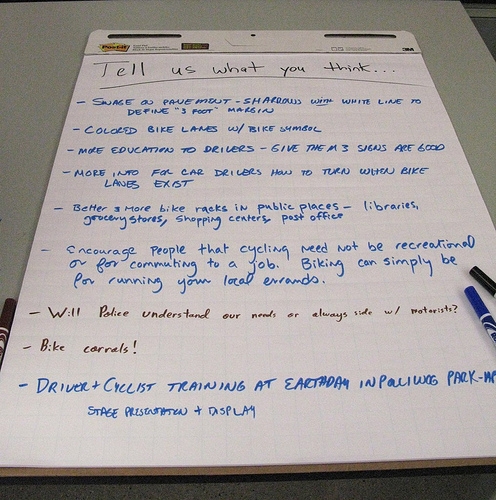 Post-it
3M
Tell us what you think...
- SIGNAGE ON PAVEMENT - SHARROWS with WHITE LINE TO
DEFINE "3 FOOT" MARGIN
- COLORED BIKE LANES W/ BIKE SYMBOL
- MORE EDUCATION TO DRIVERS - GIVE THEM 3 SIGNS ARE GOOD
- MORE INFO FOR CAR DRIVERS HOW TO TURN WHEN BIKE
LANES EXIST
- Better & More bike racks in public places - libraries,
grocery stores, shopping centers, post office
- Encourage people that cycling need not be recreational
or for commuting to a job. Biking can simply be
for running your local errands.
- Will Police understand our needs or always side w/ motorists?
- Bike corrals!
- DRIVER + CYCLIST TRAINING AT EARTHDAY IN POLLIWOG PARK-
STAGE PRESENTATION + DISPLAY